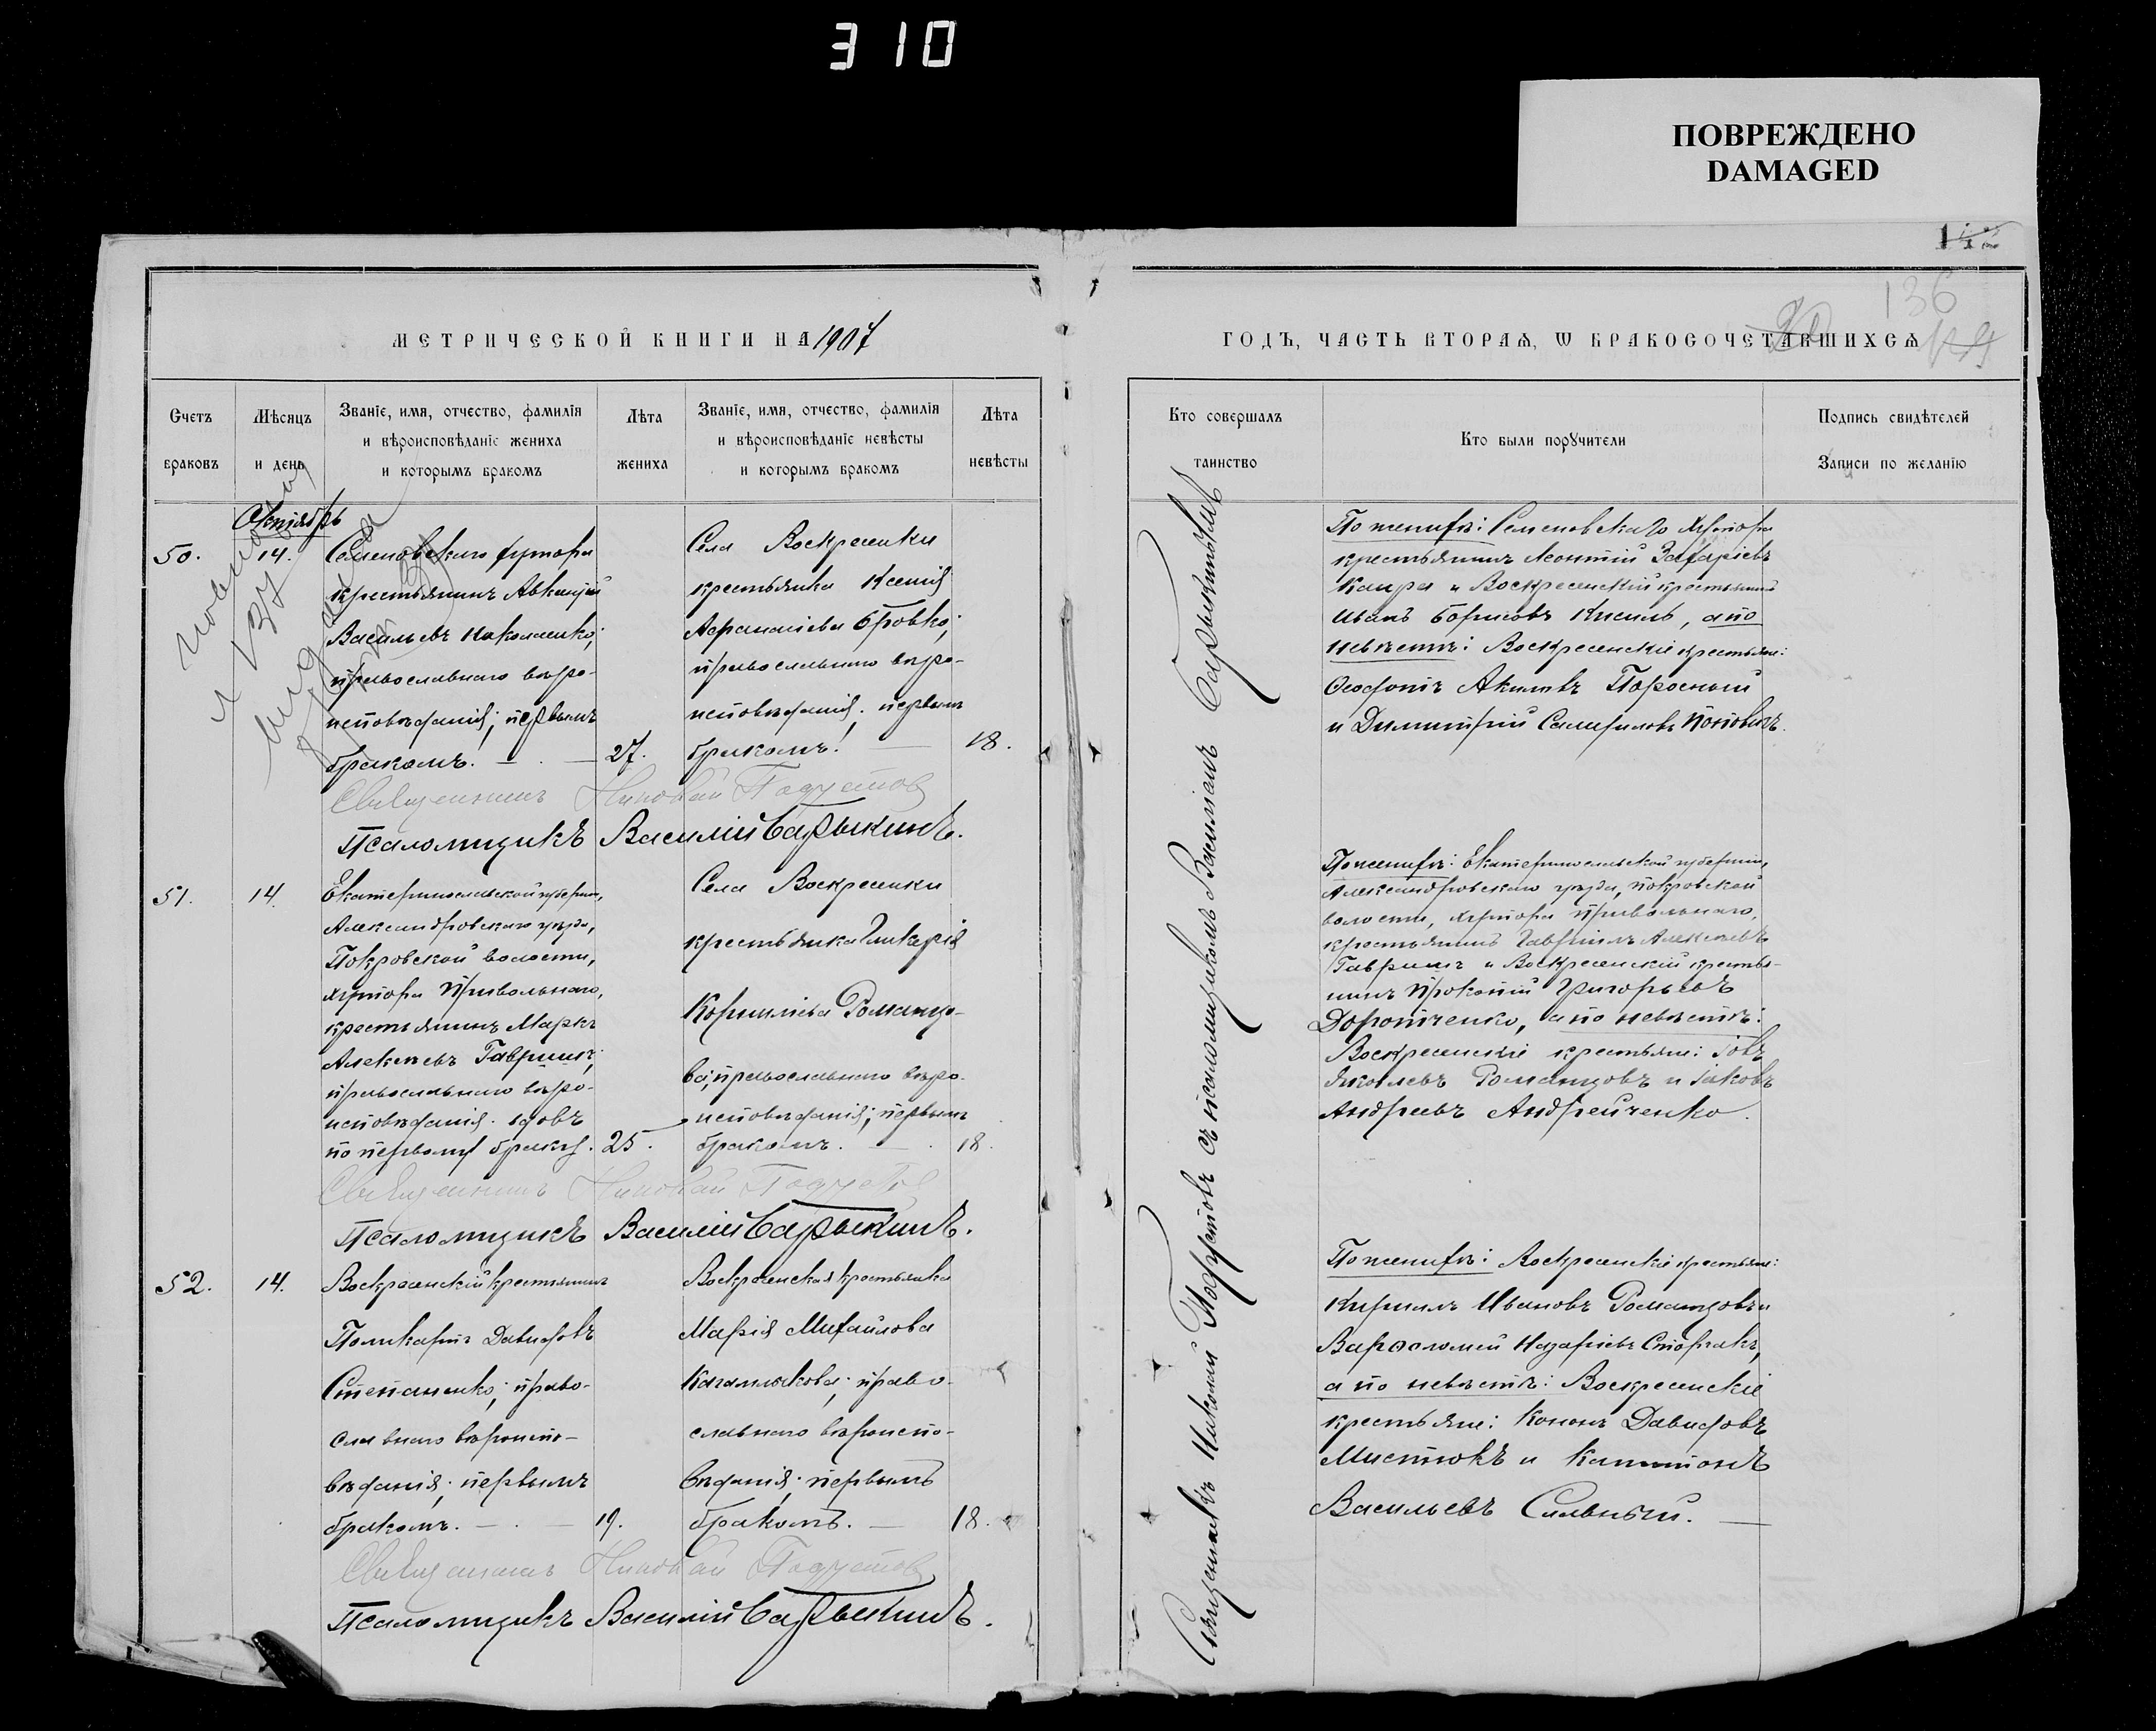 310
ПОВРЕЖДЕНО
DAMAGED
136
МЕТРИЧЕСКОЙ КНИГИ НА 1907
ГОДЪ, ЧАСТЬ ВТОРАЯ, Ѡ БРАКОСОЧЕТАВШИХСЯ
Счетъ
браковъ
Мѣсяцъ
и день
Званіе, имя, отчество, фамилія
и вѣроисповѣданіе жениха
и которымъ бракомъ
Лѣта
жениха
Званіе, имя, отчество, фамилія
и вѣроисповѣданіе невѣсты
и которымъ бракомъ
Лѣта
невѣсты
Кто совершалъ
таинство
Кто были порꙋчители
Подпись свидѣтелей
Записи по желанію
50.
14.
Семеновскаго хутора
крестьянинъ
Васильевъ Николаенко;
православнаго вѣро-
исповѣданія; первымъ
бракомъ. —
27.
Села Воскресенки
крестьянка Ксенія
Афанасіева Бровко;
православнаго вѣро-
исповѣданія; первымъ
бракомъ. —
18.
Священникъ Николай
Псаломщикъ Василій Барыкинъ.
51.
14.
Екатеринославской губерніи,
Александровскаго уѣзда,
Покровской волости,
хутора Привольнаго,
крестьянинъ Маркъ
Алексѣевъ Гавришъ;
православнаго вѣро-
исповѣданія. вдовъ
по первому браку.
25.
Села Воскресенки
крестьянка Гликерія
Корниліева Романцо-
ва; православнаго вѣро-
исповѣданія; первымъ
бракомъ. —
18.
Священникъ Николай
Псаломщикъ Василій Барыкинъ.
52.
14.
Воскресенскій крестьянинъ
Поликарпъ Давидовъ
Степаненко; право-
славнаго вѣроиспо-
вѣданія; первымъ
бракомъ. —
19.
Воскресенская крестьянка
Марія Михайлова
православнаго вѣроиспо-
вѣданія; первымъ
бракомъ. —
18.
Священникъ Николай
Псаломщикъ Василій Барыкинъ.
Священникъ Николай съ псаломщикомъ Василіемъ Барыкинымъ
По женихѣ: Семеновскаго хутора
крестьянинъ Леонтій Захаріевъ
и Воскресенскій крестьянинъ
Иванъ Борисовъ Кисиль, а по
невѣстѣ: Воскресенскіе крестьяне:
Акимовъ
и Димитрій
По женихѣ: Екатеринославской губерніи,
Александровскаго уѣзда, Покровской
волости, хутора Привольнаго,
крестьянинъ Гавріилъ Алексѣевъ
Гавришъ и Воскресенскій крестья-
нинъ Прокопій Григорьевъ
а по невѣстѣ:
Воскресенскіе крестьяне: Іовъ
Яковлевъ Романцовъ и Іаковъ
Андреевъ Андрейченко.
По женихѣ: Воскресенскіе крестьяне:
Кириллъ Ивановъ Романцовъ и
Варѳоломей Назаріевъ
а по невѣстѣ: Воскресенскіе
крестьяне: Кононъ Давидовъ
и Капитонъ
Васильевъ Сильный. —